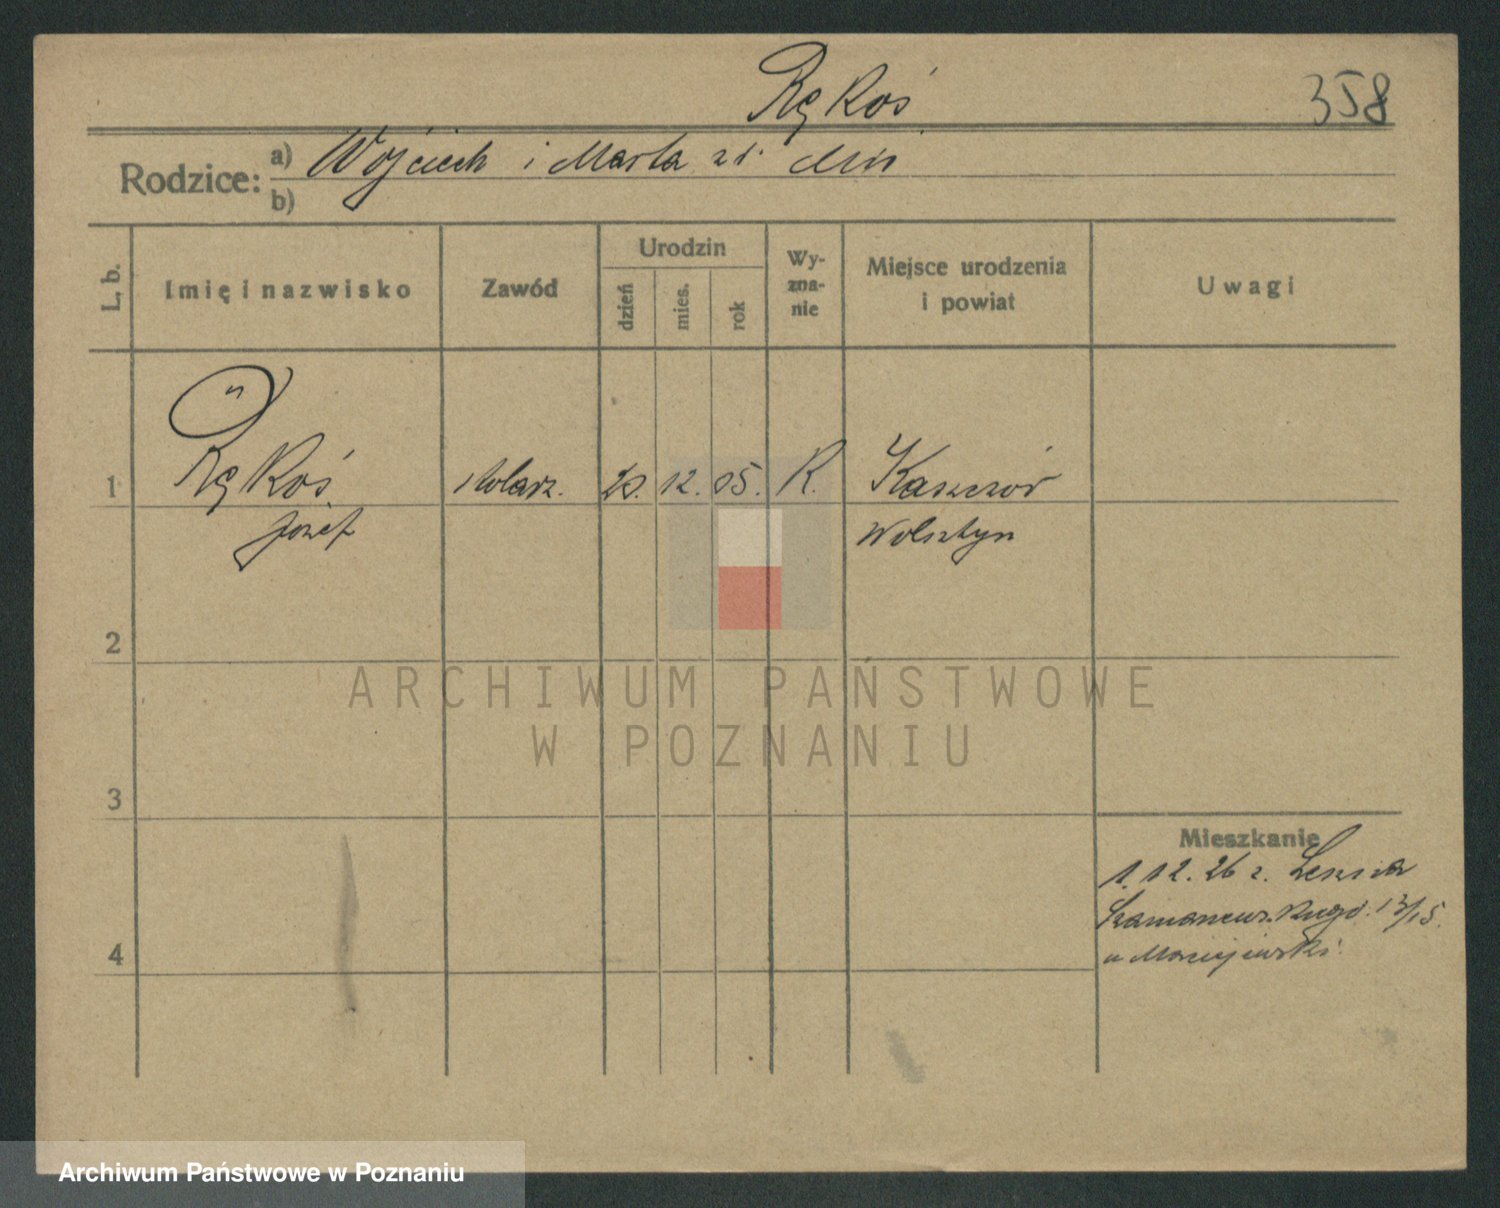 Rękoś
358
Rodzice: a) Wojciech i Marta zd. Miś
b)
L. b.
Imię i nazwisko
Zawód
Urodzin
dzień
mies.
rok
Wy-
zna-
nie
Miejsce urodzenia
i powiat
Uwagi
1
Rękoś
Józef
stolarz.
20. 12. 05.
R.
Kaszczor
Wolsztyn
2
3
4
Mieszkanie
1.12.26 z. Leszna
13/15.
u Maciejewski.
ARCHIWUM PAŃSTWOWE
W POZNANIU
Archiwum Państwowe w Poznaniu